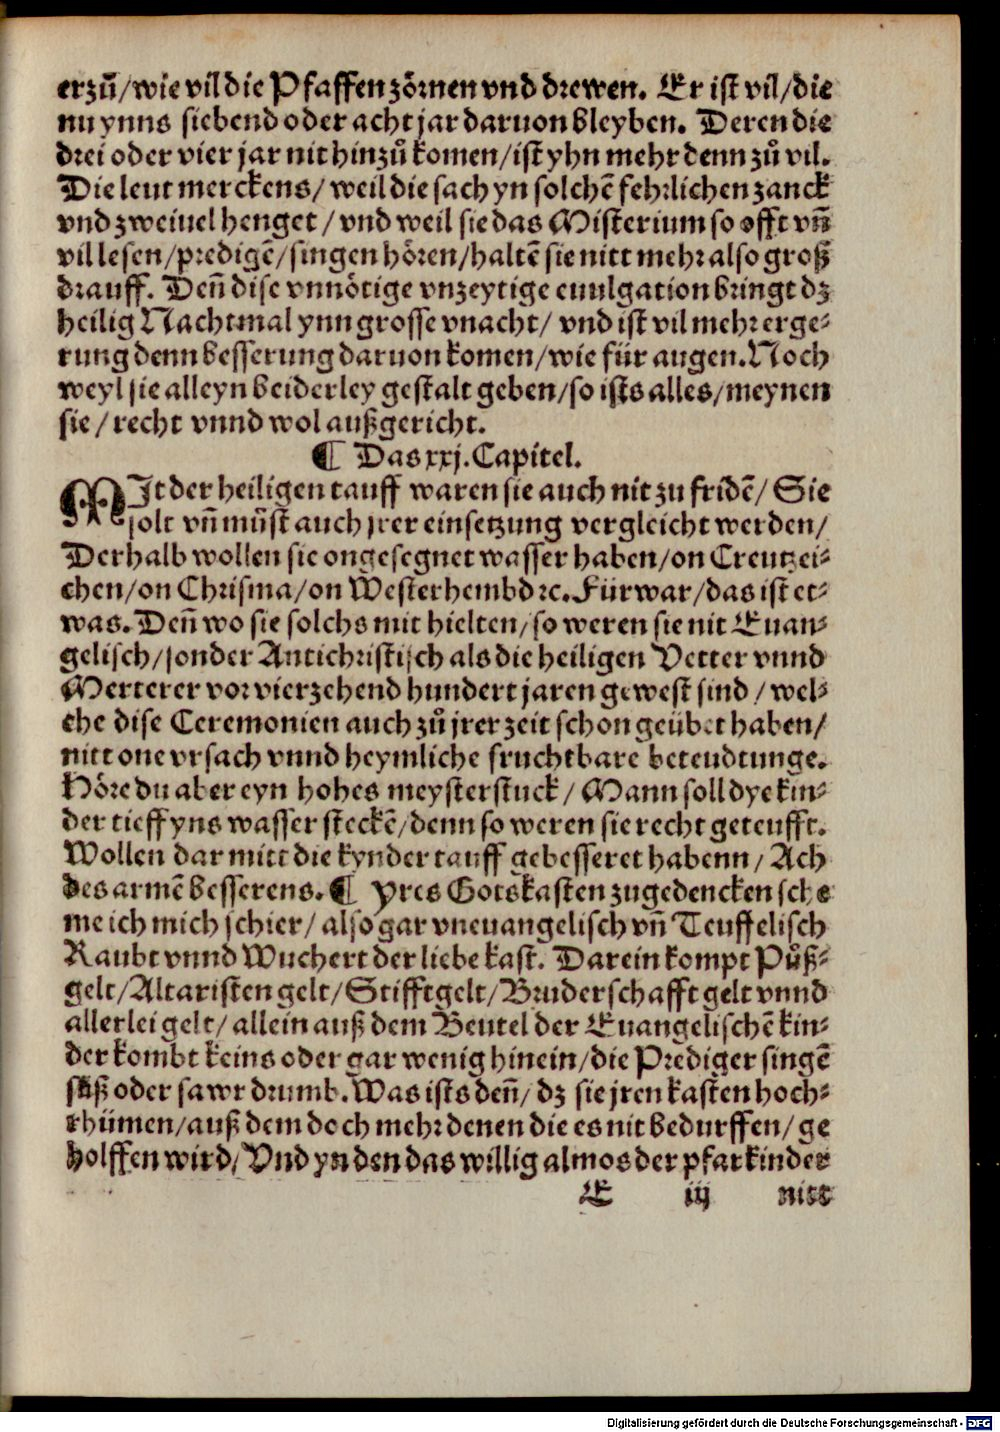 erzů/wie vil die Pfaffen zörnen vnd drewen. Er ist vil/die
nu ynns siebend oder acht jar daruon bleyben. Deren die
drei oder vier jar nit hinzů komen/ist yhn mehr denn zů vil.
Die leut merckens/ weil die sach yn solchē fehrlichen zanck
vnd zweiuel henget/ vnd weil sie das Misterium so offt vñ
vil lesen/predigē/singen hören/haltē sie nitt mehr also groß
drauff. Deñ dise vnnötige vnzeytige euulgation bringt dz
heilig Nachtmal ynn grosse vnacht/ vnd ist vil mehr erge⸗
rung denn besserung daruon komen/wie für augen. Noch
weyl sie alleyn beiderley gestalt geben/so ists alles/meynen
sie/ recht vnnd wol außgericht.
¶ Das xxj. Capitel.
MIt der heiligen tauff waren sie auch nit zu fridē/ Sie
solt vñ můst auch jrer einsetzung vergleicht werden/
Derhalb wollen sie ongesegnet wasser haben/on Creutzei⸗
chen/on Chrisma/on Westerhembd ꝛc. Fürwar/das ist et⸗
was. Deñ wo sie solchs mit hielten/so weren sie nit Euan⸗
gelisch/sonder Antichristisch als die heiligen Vetter vnnd
Merterer vor vierzehend hundert jaren gewest sind/ wel⸗
che dise Ceremonien auch zů jrer zeit schon geübet haben/
nitt one vrsach vnnd heymliche fruchtbare beteudtunge.
Höre du aber eyn hohes meysterstuck/ Mann soll dye kin⸗
der tieff yns wasser steckē/denn so weren sie recht geteufft.
Wollen dar mitt die kynder tauff gebesseret habenn/ Ach
des armē besserens. ¶ Yres Gotskasten zugedencken sche
me ich mich schier/ also gar vneuangelisch vñ Teuffelisch
Raubt vnnd Wuchert der liebe kast. Darein kompt Půß⸗
gelt/Altaristen gelt/Stifftgelt/Bruderschafft gelt vnnd
allerlei gelt/ allein auß dem Beutel der Euangelischē kin⸗
der kombt keins oder gar wenig hinein/die Prediger singē
sůß oder sawr drumb. Was ists deñ/ dz sie jren kasten hoch⸗
rhümen/auß dem doch mehr denen die es nit bedurffen/ ge
holffen wird/Vnd yn den das willig almos der pfarkinder
E iij nitt
Digitalisierung gefördert durch die Deutsche Forschungsgemeinschaft - DFG